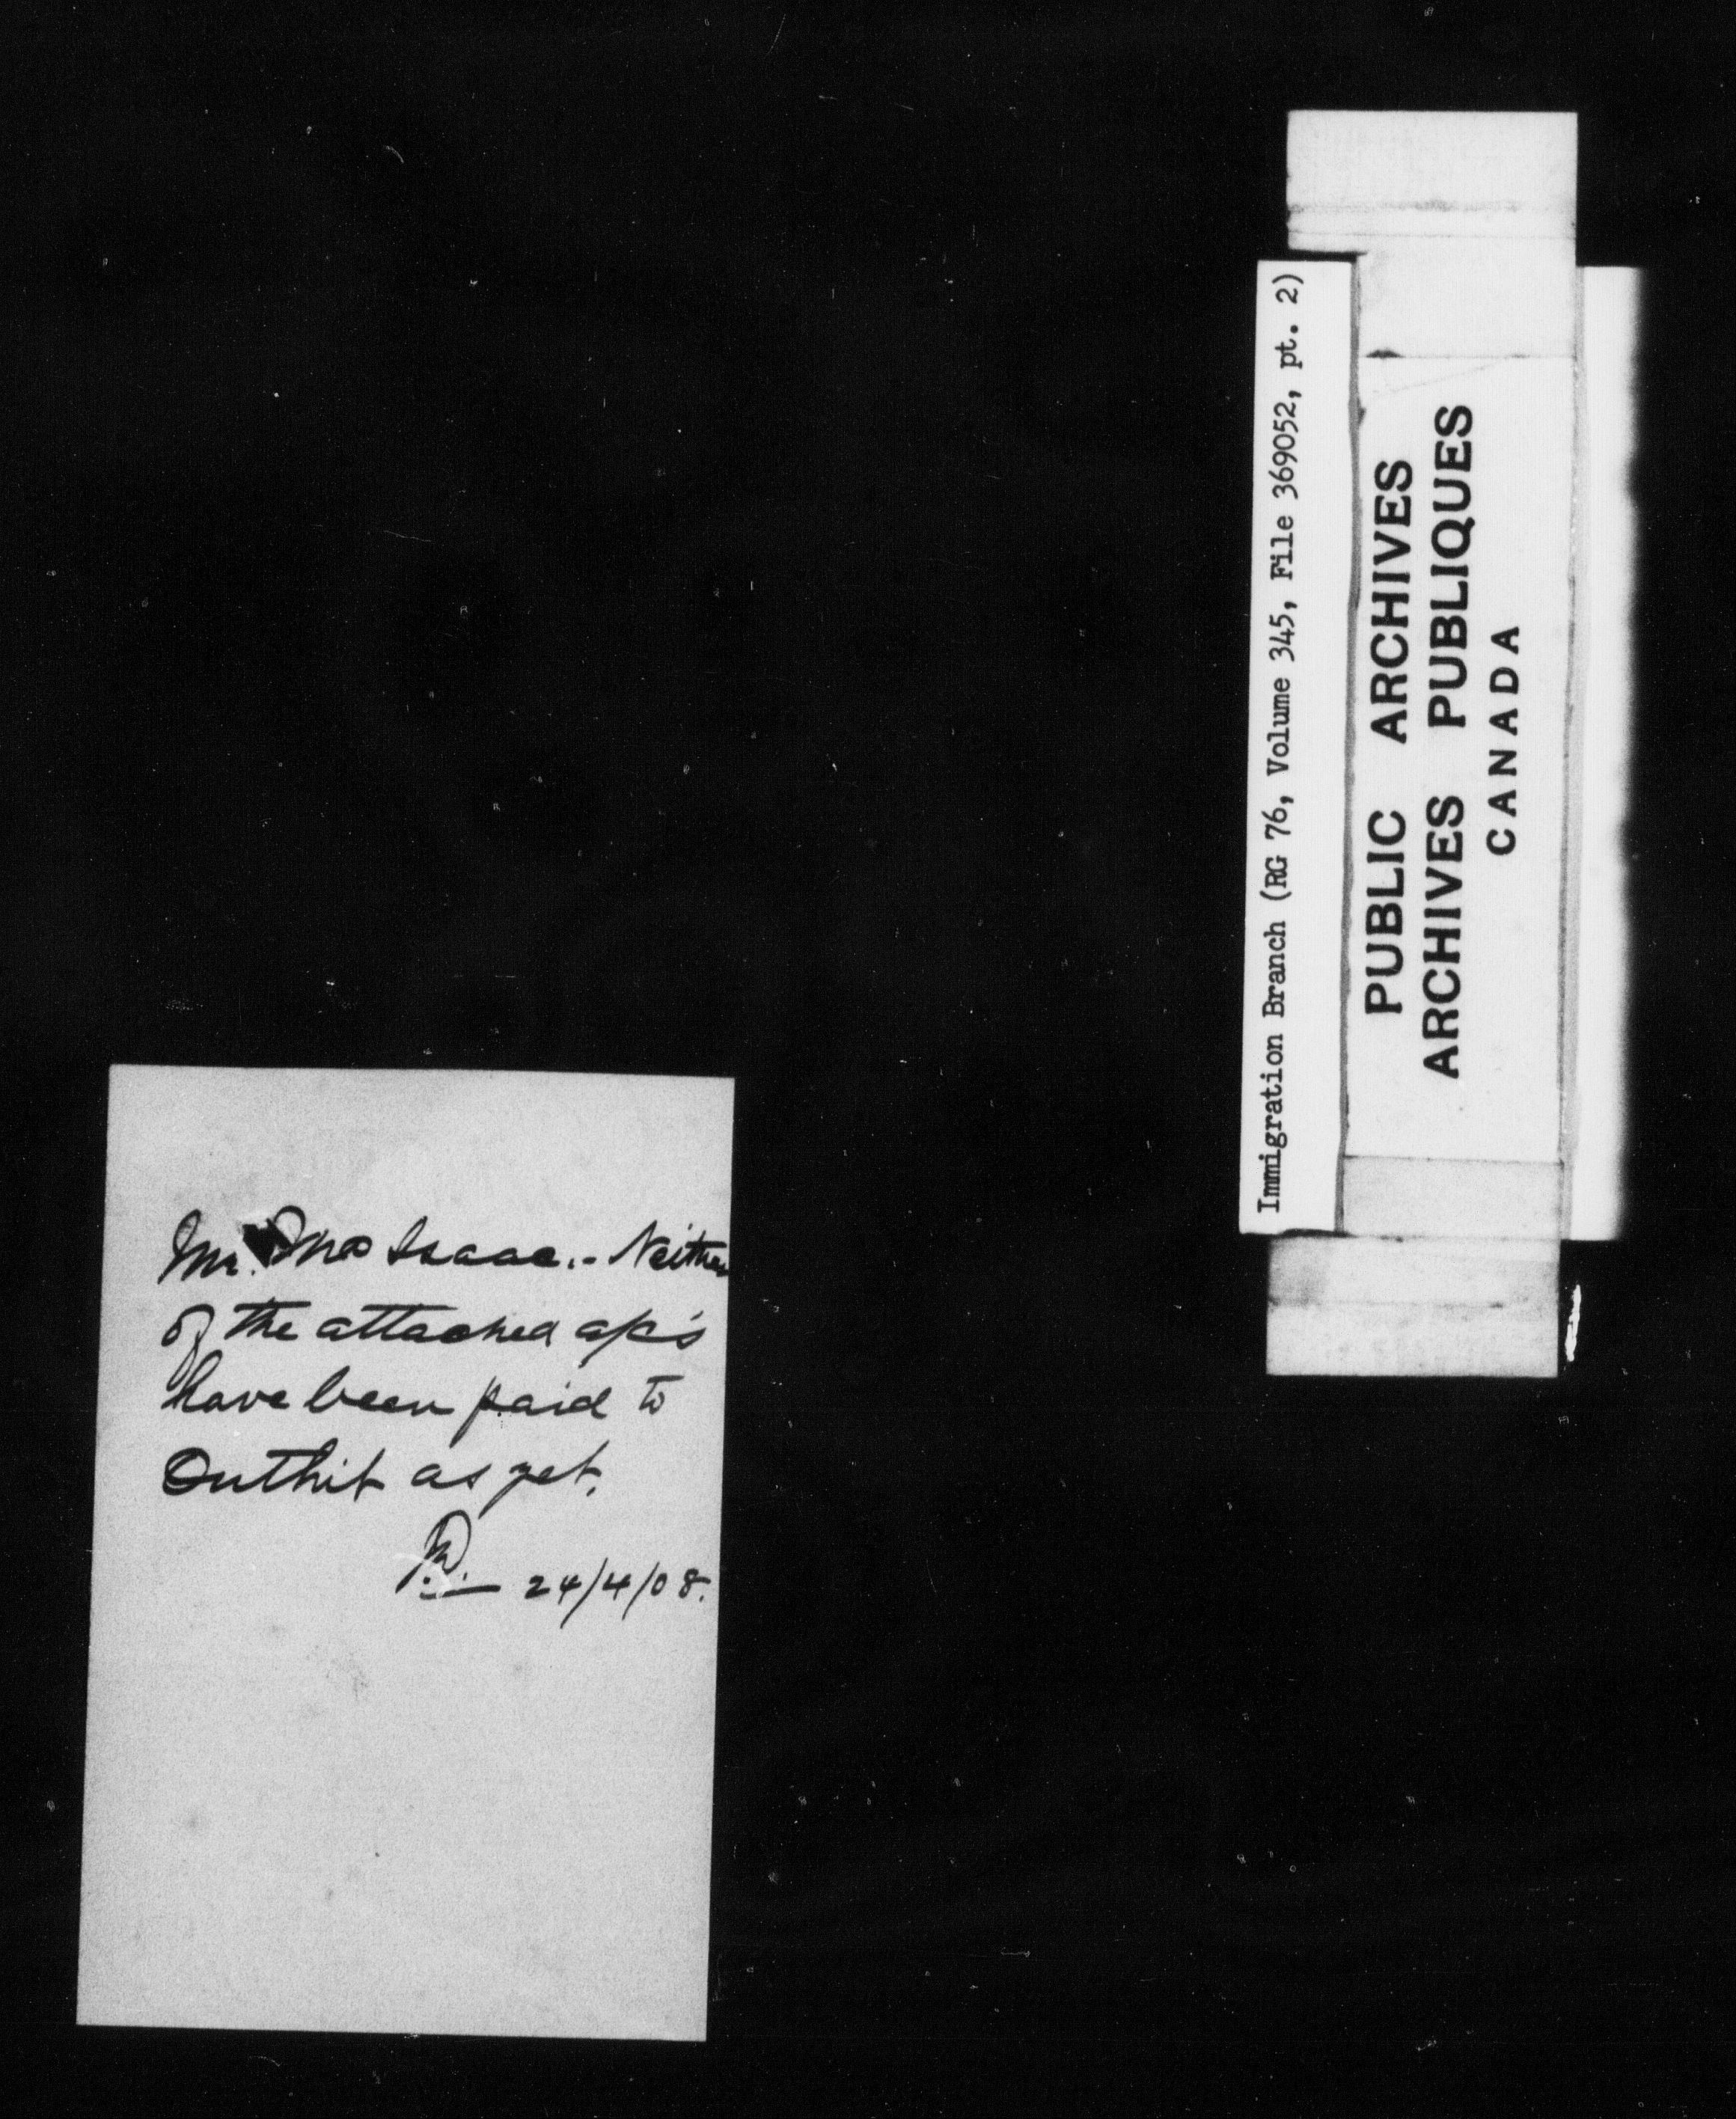 Mr. Isaac.- Neither
of the attached a/cs
have been paid to
Outhit as yet.
24/4/08.
Immigration Branch (RG 76, Volume 345, File 369052, pt. 2)
PUBLIC ARCHIVES
ARCHIVES PUBLIQUES
CANADA